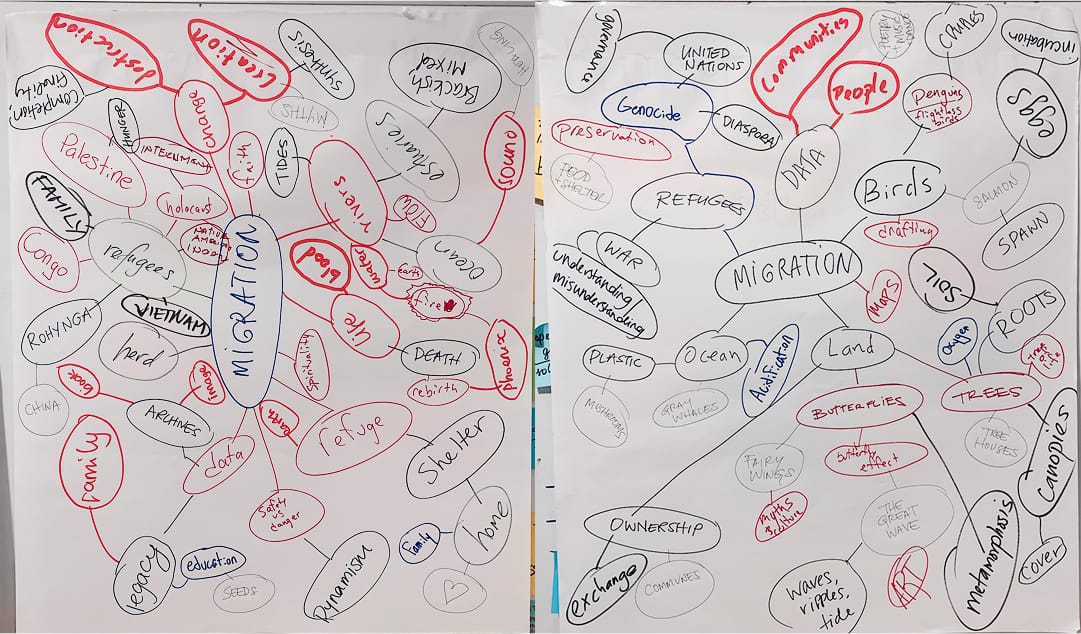 destruction
Creation
Synthosis
Completion,
finality
change
MYTHS
Brackish
MIXED
HEALING
HUNGER
INTERNMENT
faith
TIDES
estuaries
SOUND
Palestine
rivers
Flow
FAMILY
holocaust
NATIVE
AMERICAN
INDGN
Congo
refugees
MIGRATION
blood
water
earth
fire
Ocean
VIETNAM
life
ROHYNGA
herd
DEATH
phoenix
spirituality
rebirth
book
image
CHINA
ARCHIVES
earth
refuge
Shelter
family
data
Safety
vs
danger
home
Family
legacy
education
SEEDS
Dynamism
governance
UNITED
NATIONS
Communities
POETRY
+ MUSIC
DANCE
CAMELS
incubation
People
Genocide
DIASPORA
Penguins
flightless
birds
eggs
preservation
DATA
FOOD
+ SHELTER
REFUGEES
Birds
SALMON
drafting
SPAWN
WAR
understanding
misunderstanding
MIGRATION
MAPS
SOIL
ROOTS
PLASTIC
Ocean
Acidification
Land
Oxygen
tree of
life
MUSHROOMS
GRAY
WHALES
BUTTERFLIES
TREES
TREE
HOUSES
FAIRY
WINGS
butterfly
effect
canopies
myths
& culture
THE
GREAT
WAVE
OWNERSHIP
metamorphosis
cover
exchange
COMMUNES
waves,
ripples,
tide
ART